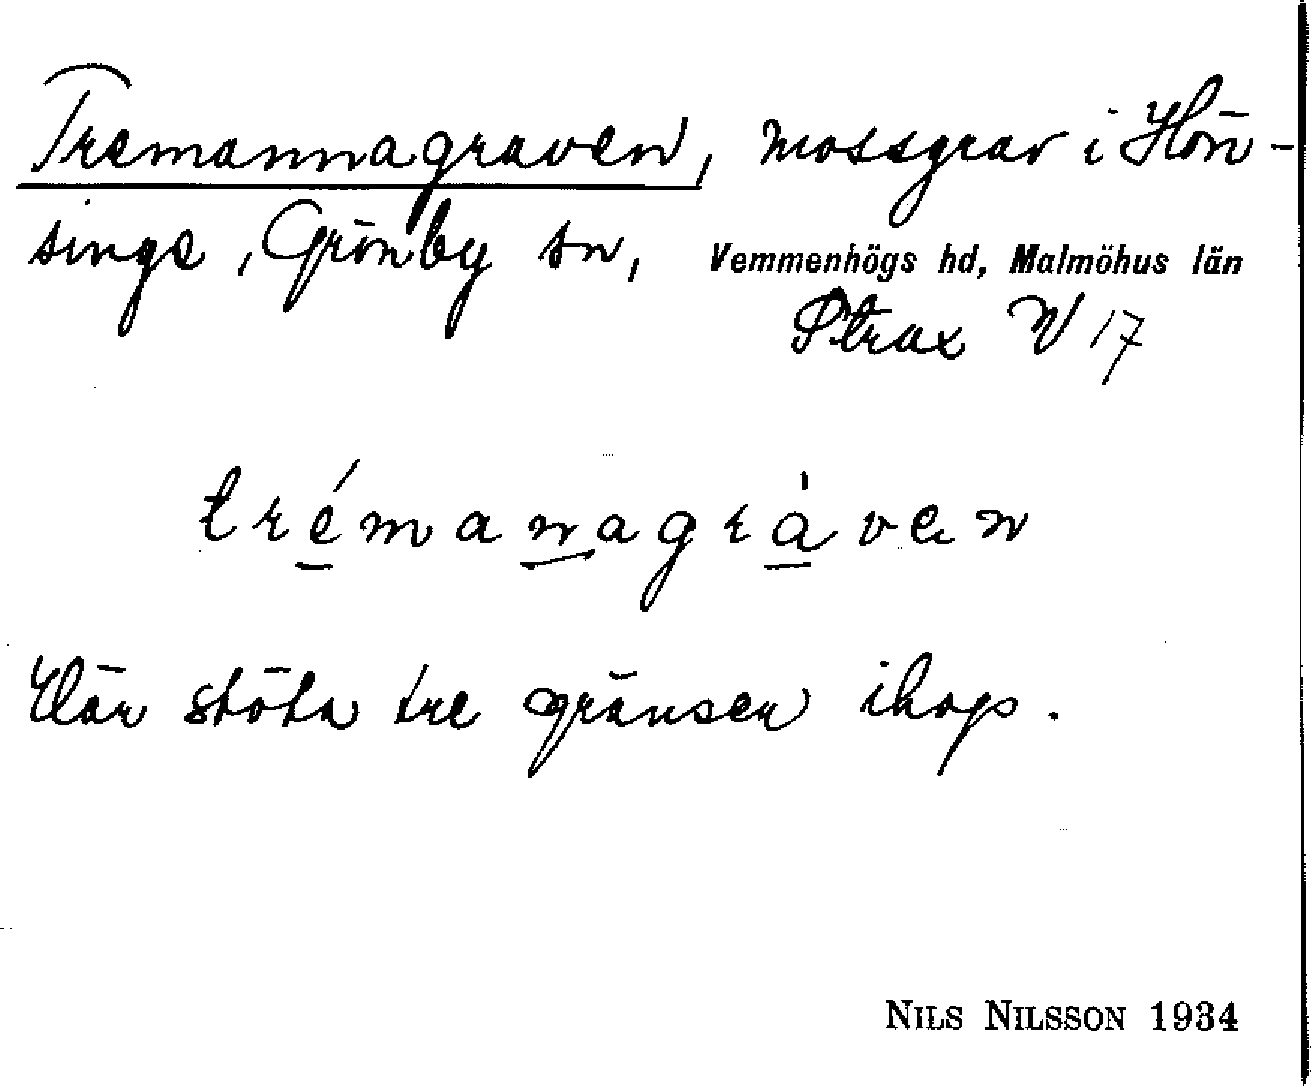 Tremannagraven, mossgrav i Hön-
singe, Grönby sn, Vemmenhögs hd, Malmöhus län
Strax V 17
trémanagràven
Där stöta tre gränser ihop.
NILS NILSSON 1934